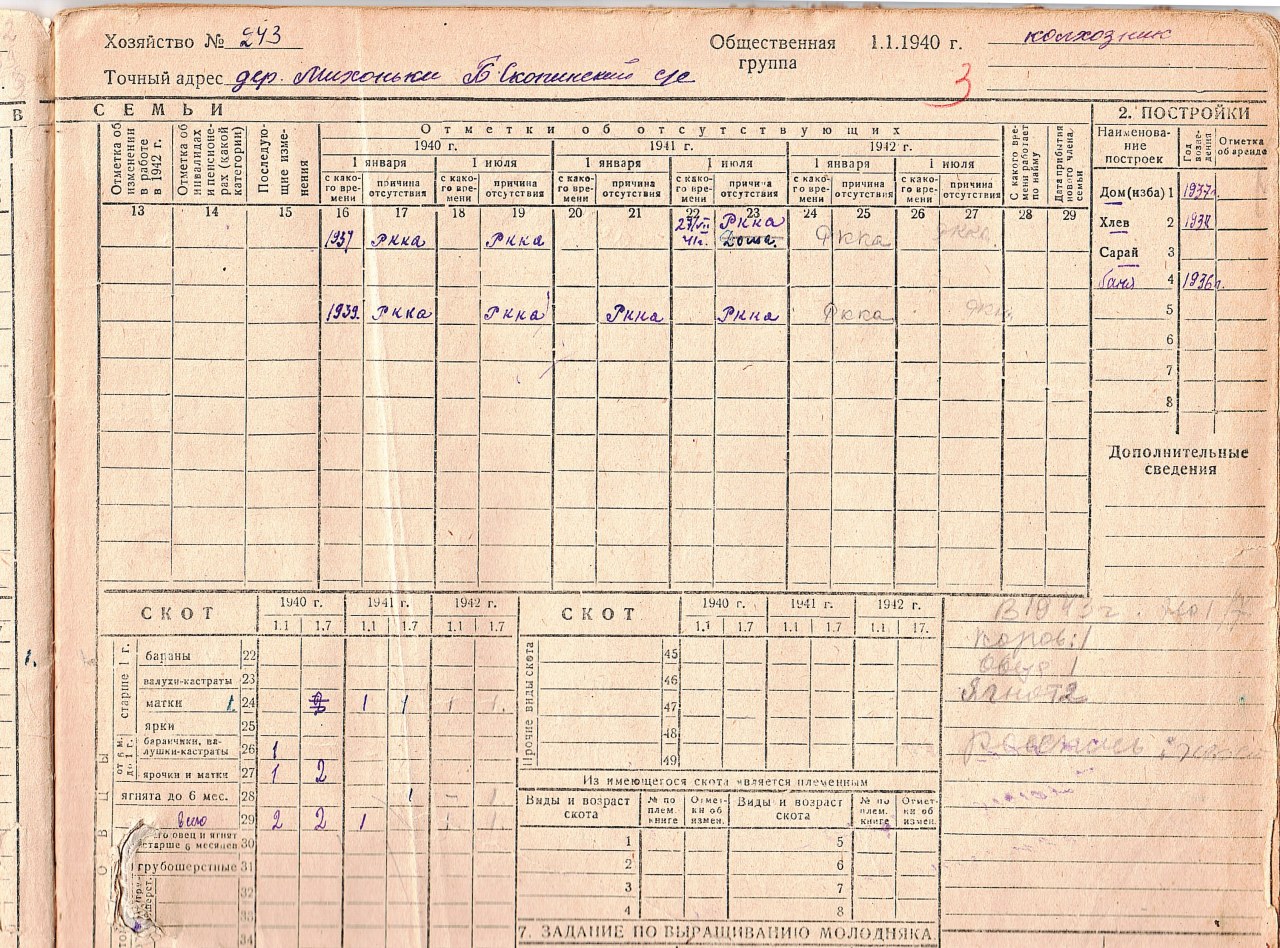 Хозяйство № 243
Общественная группа 1.1.1940 г. колхозник
Точный адрес дер. Михоньки Б Скопинский с/с
3
В
СЕМЬИ
Отметка об изменении в работе в 1942 г.
Отметка об инвалидах и пенсионерах (какой категории)
Последующие изменения
Отметки об отсутствующих
1940 г. 1941 г. 1942 г.
1 января 1 июля 1 января 1 июля 1 января 1 июля
с какого времени причина отсутствия с какого времени причина отсутствия с какого времени причина отсутствия с какого времени причина отсутствия с какого времени причина отсутствия с какого времени причина отсутствия
С какого времени работает по найму
Дата прибытия нового члена семьи
13 14 15 16 17 18 19 20 21 22 23 24 25 26 27 28 29
1937 Ркка Ркка 41г. Ркка Дома. Ркка Ркка
1939. Ркка Ркка Ркка Ркка Ркка
2. ПОСТРОЙКИ
Наименование построек Год возведения Отметка об аренде
Дом (изба) 1 1937г.
Хлев 2
Сарай 3
баня 4 1936г.
5
6
7
8
Дополнительные сведения
СКОТ 1940 г. 1941 г. 1942 г.
1.1 1.7 1.1 1.7 1.1 1.7
старше 1 г.
бараны 22
валухи-кастраты 23
матки 1. 24 2 1 1 1 1.
ярки 25
от 6 м. до 1 г.
баранчики, валушки-кастраты 26 1
ярочки и матки 27 1 2
ягнята до 6 мес. 28 1 – 1
всего 29 2 2 1 1 1
го овец и ягнят старше 6 месяцев 30
грубошерстные 31
32
33
34
СКОТ 1940 г. 1941 г. 1942 г.
1.1 1.7 1.1 1.7 1.1 17.
Прочие виды скота
45
46
47
48
49
Из имеющегося скота является племенным
Виды и возраст скота № по плем. книге Отметки об измен. Виды и возраст скота № по плем. книге Отметки об измен.
1 5
2 6
3 7
4 8
7. ЗАДАНИЕ ПО ВЫРАЩИВАНИЮ МОЛОДНЯКА.
В 1943 г. на 1/7
коров: 1
овец 1
Ягнят 2